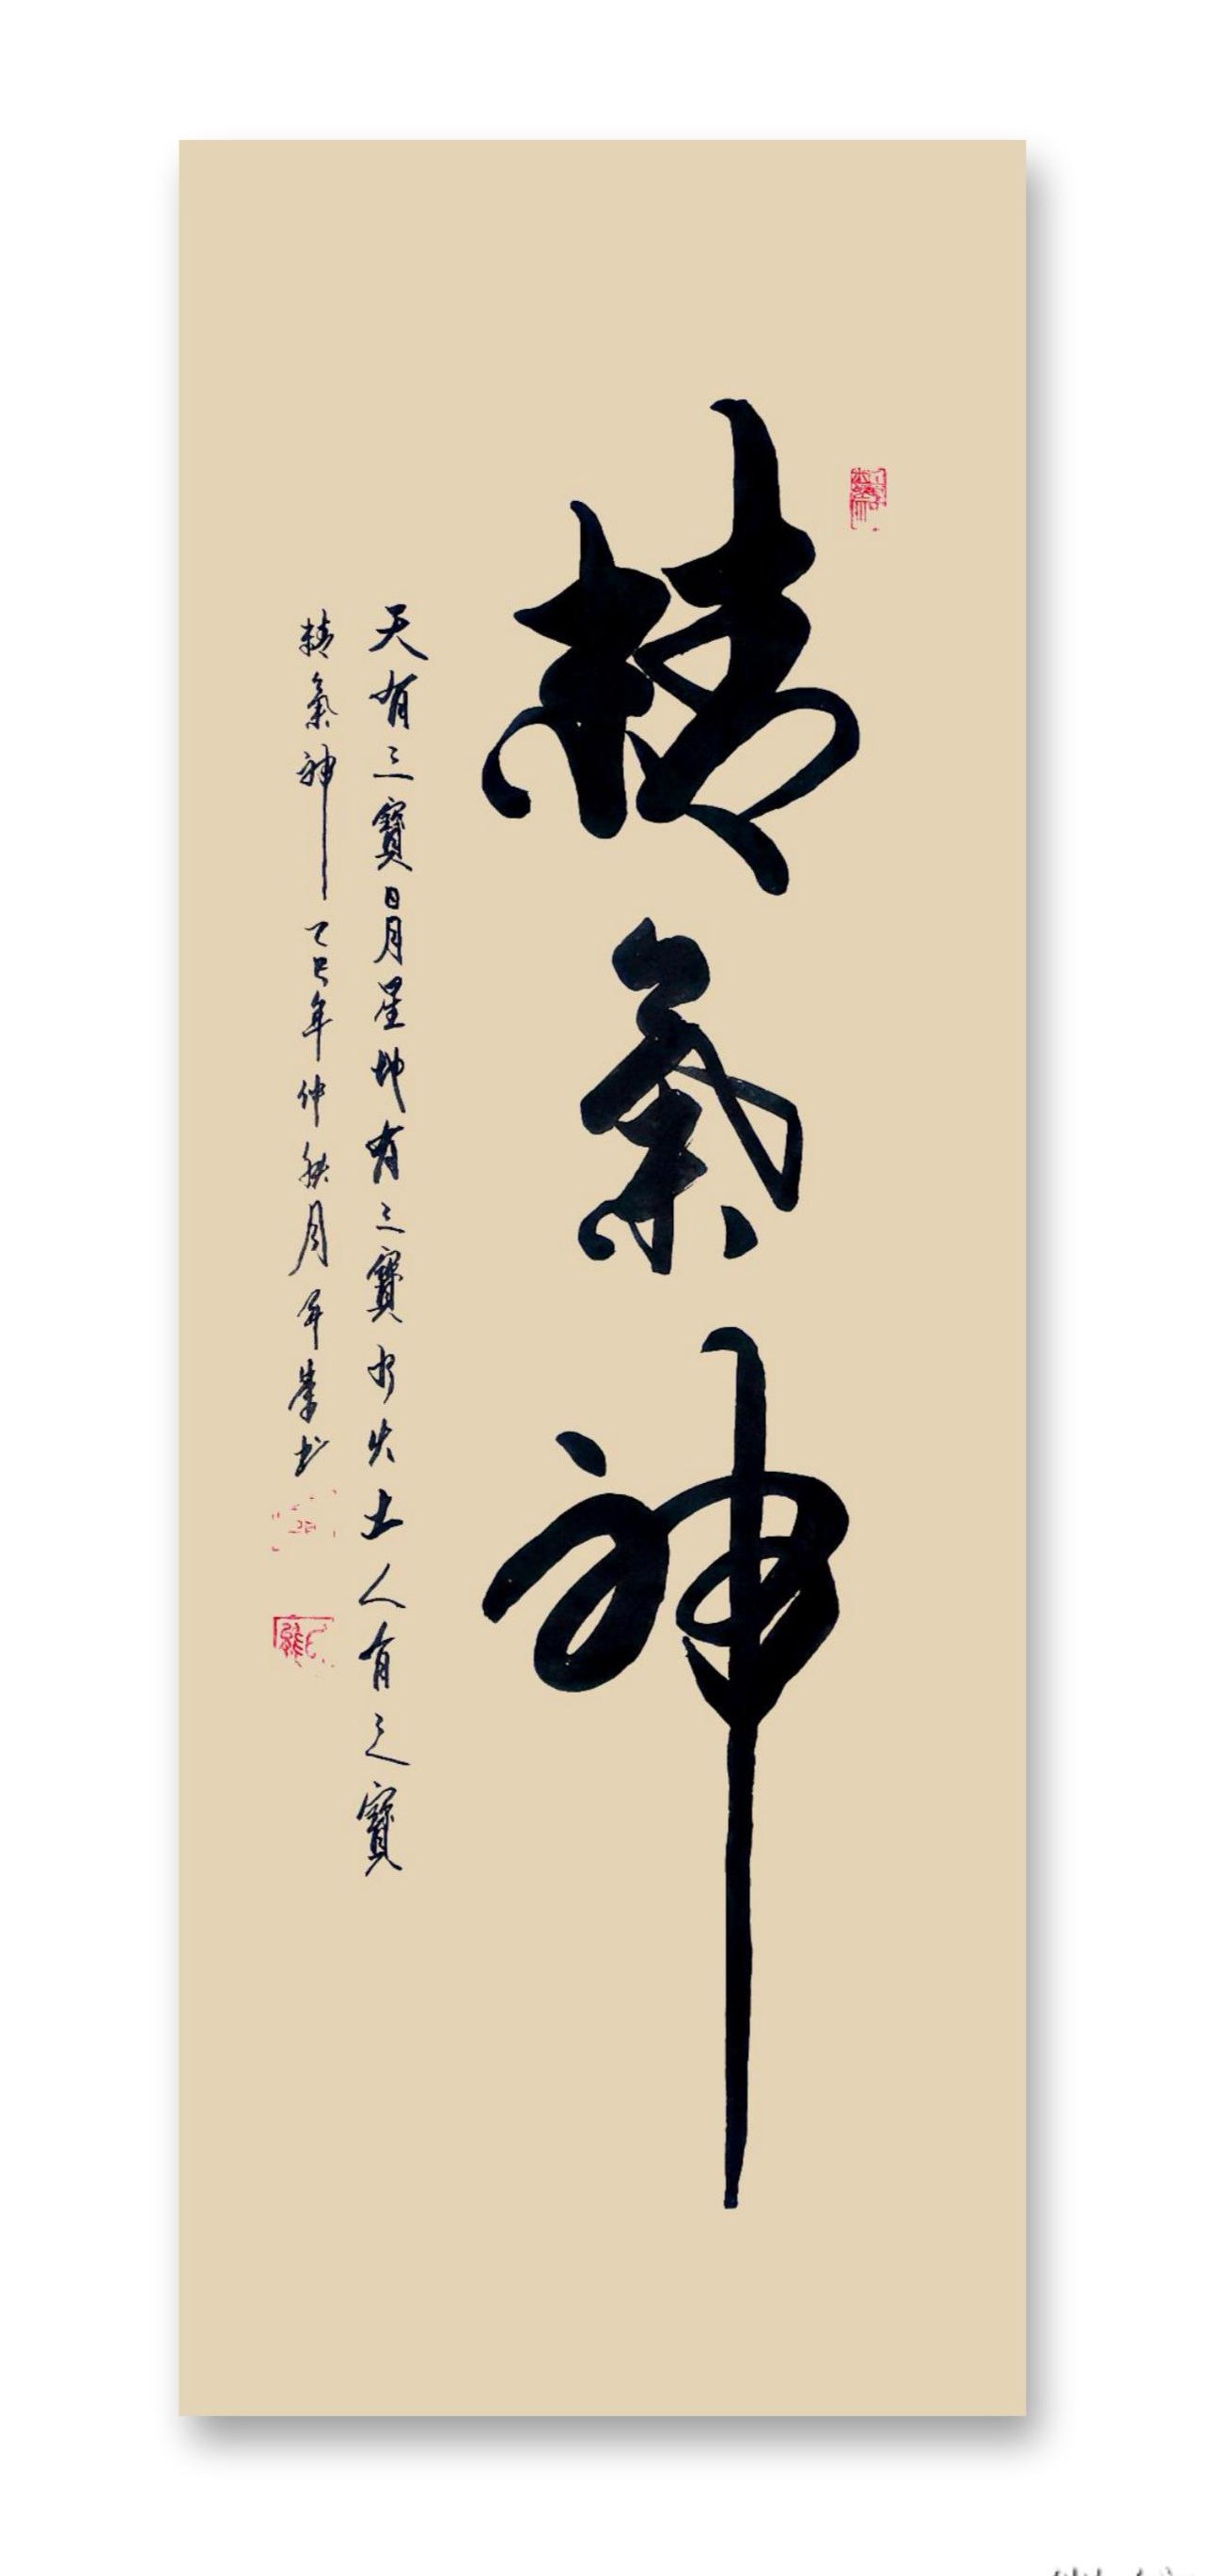 精氣神
天有三寶日月星坤有三寶水火土人有三寶
精氣神乙巳年仲秋月年華書